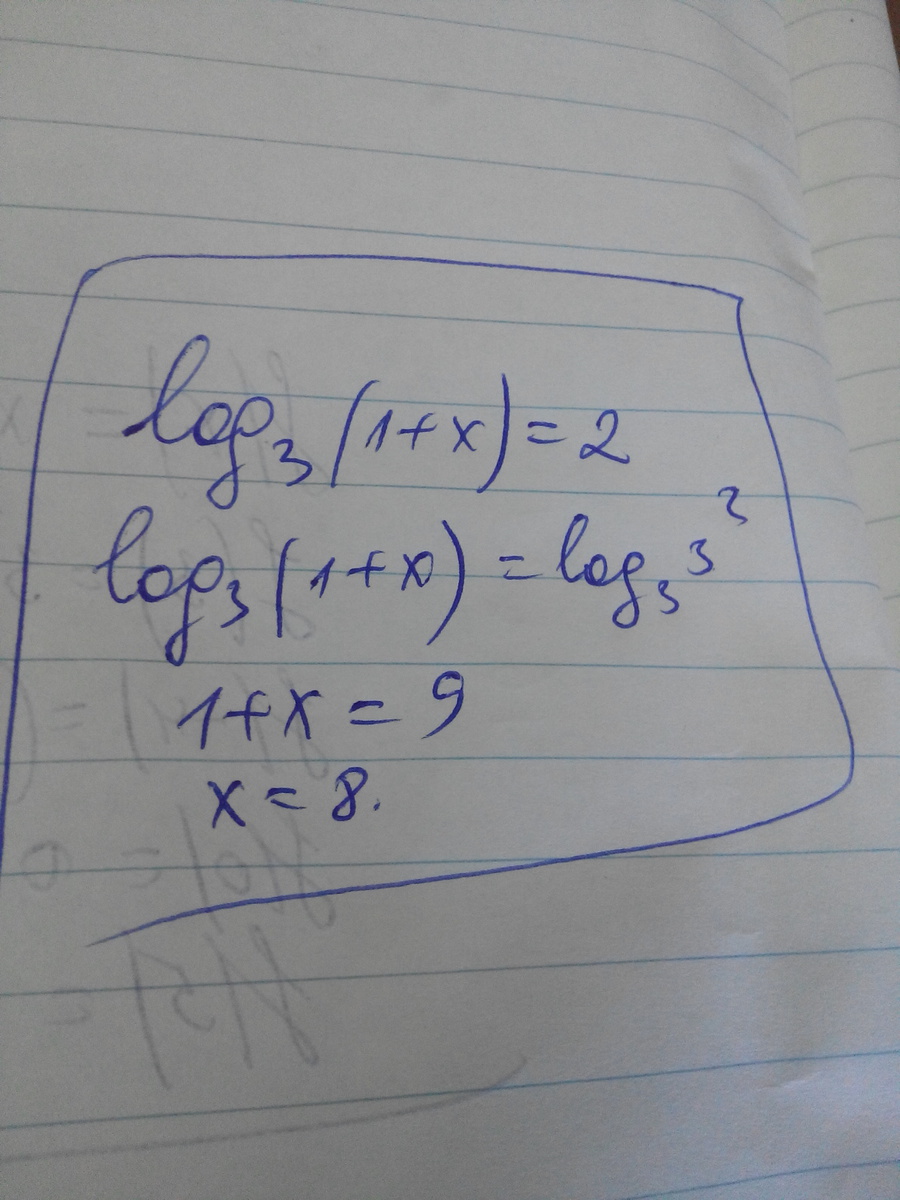 log₃(1+x)=2
log₃(1+x)=log₃3²
1+x=9
x=8.